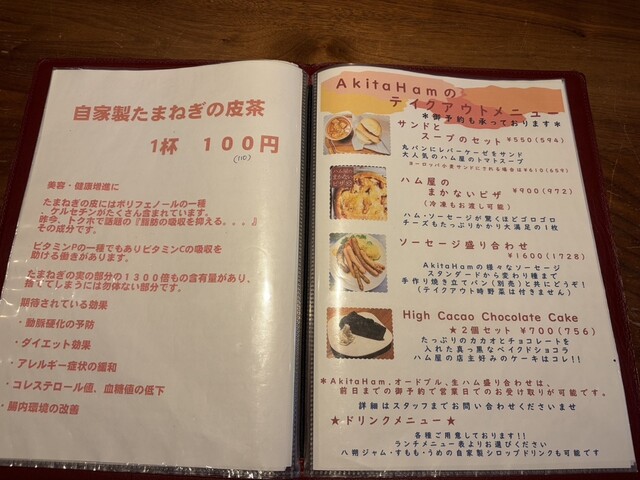 自家製たまねぎの皮茶
1杯 100円
(110)
美容・健康増進に
たまねぎの皮にはポリフェノールの一種
ケルセチンがたくさん含まれています。
昨今、トクホで話題の『脂肪の吸収を抑える。。。』
その成分です。
ビタミンPの一種でもありビタミンCの吸収を
助ける働きがあります。
たまねぎの実の部分の1300倍もの含有量があり、
捨ててしまうには勿体ない部分です。
期待されている効果
・動脈硬化の予防
・ダイエット効果
・アレルギー症状の緩和
・コレステロール値、血糖値の低下
・腸内環境の改善
AkitaHamの
テイクアウトメニュー
*御予約も承っております*
サンドと
スープのセット ¥550(594)
丸パンにレバーケーゼをサンド
大人気のハム屋のトマトスープ
ヨーロッパ小麦サンドにされる場合は¥610(659)
ハム屋の
まかないピザ ¥900(972)
(冷凍もお渡し可能)
ハム・ソーセージが驚くほどゴロゴロ
チーズもたっぷりかかり大満足の1枚
ソーセージ盛り合わせ
¥1600(1728)
AkitaHamの様々なソーセージ
スタンダードから変わり種まで
手作り焼き立てパン(別売)と共にどうぞ!
(テイクアウト時野菜は付きません)
High Cacao Chocolate Cake
★2個セット ¥700(756)
たっぷりのカカオとチョコレートを
入れた真っ黒なベイクドショコラ
ハム屋の店主好みのケーキはコレ!!
*AkitaHam、オードブル、生ハム盛り合わせは、
前日までの御予約で営業日でのお受け取りが可能です。
詳細はスタッフまでお問い合わせくださいませ
★ドリンクメニュー★
各種ご用意しております!!
ランチメニュー表よりお選びください
八朔ジャム・すもも・うめの自家製シロップドリンクも可能です